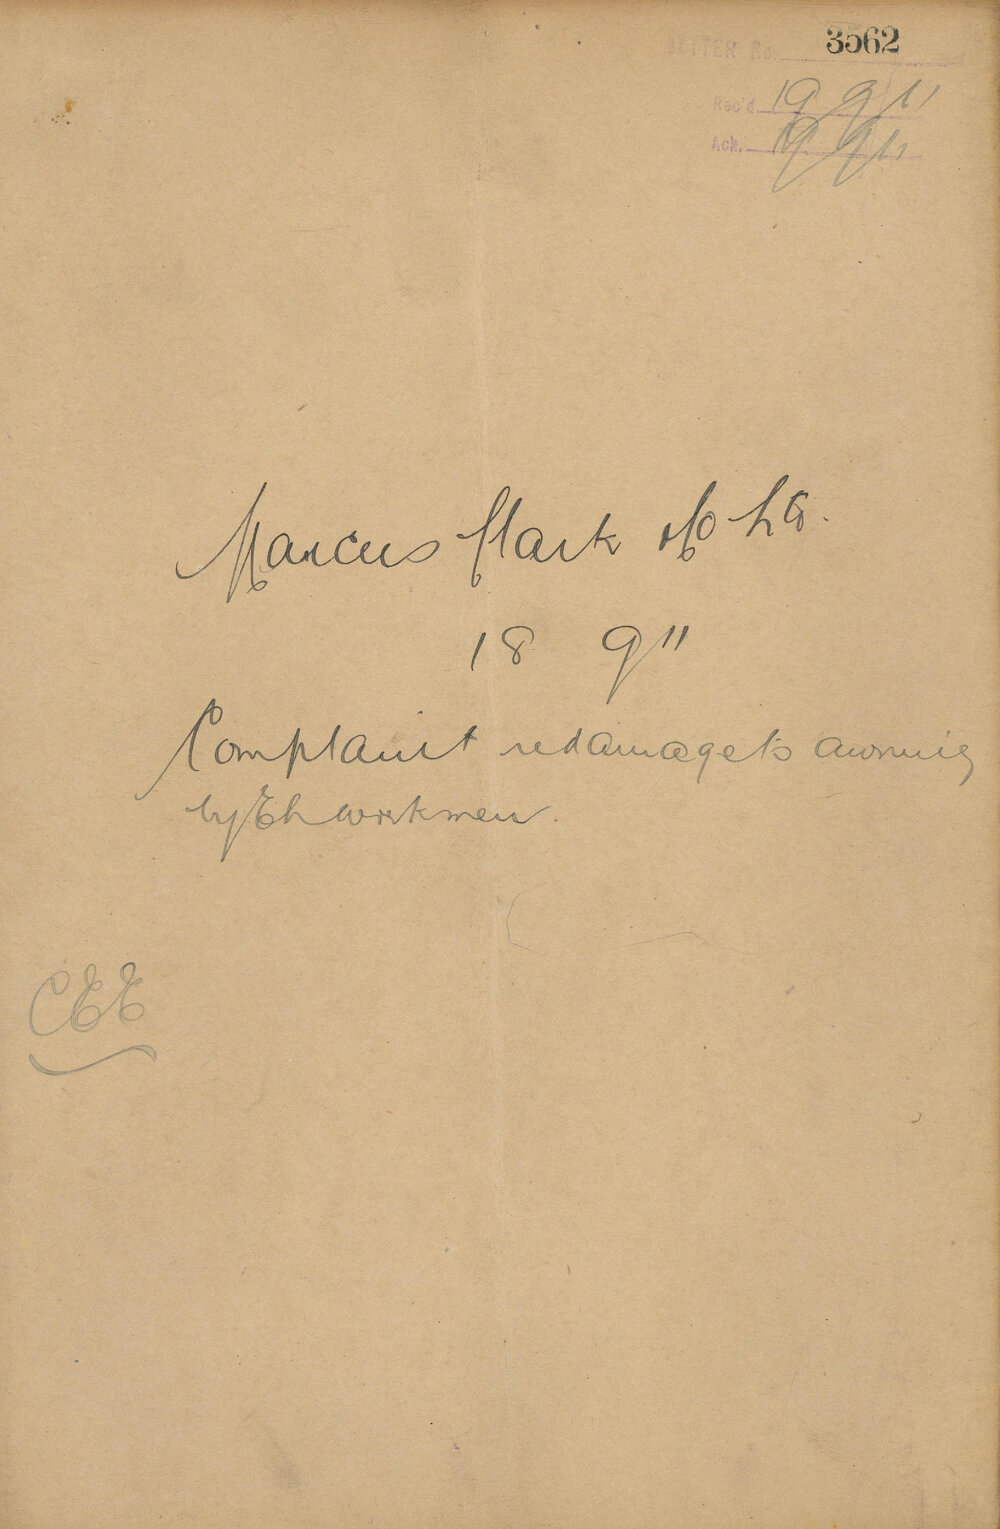 LETTER No. 3562
Rec'd 19 9 11
Ack. 19 9 11
Marcus Clark & Co Ltd.
18 9 11
Complaint re damage to awning
by EL workmen.
CEE